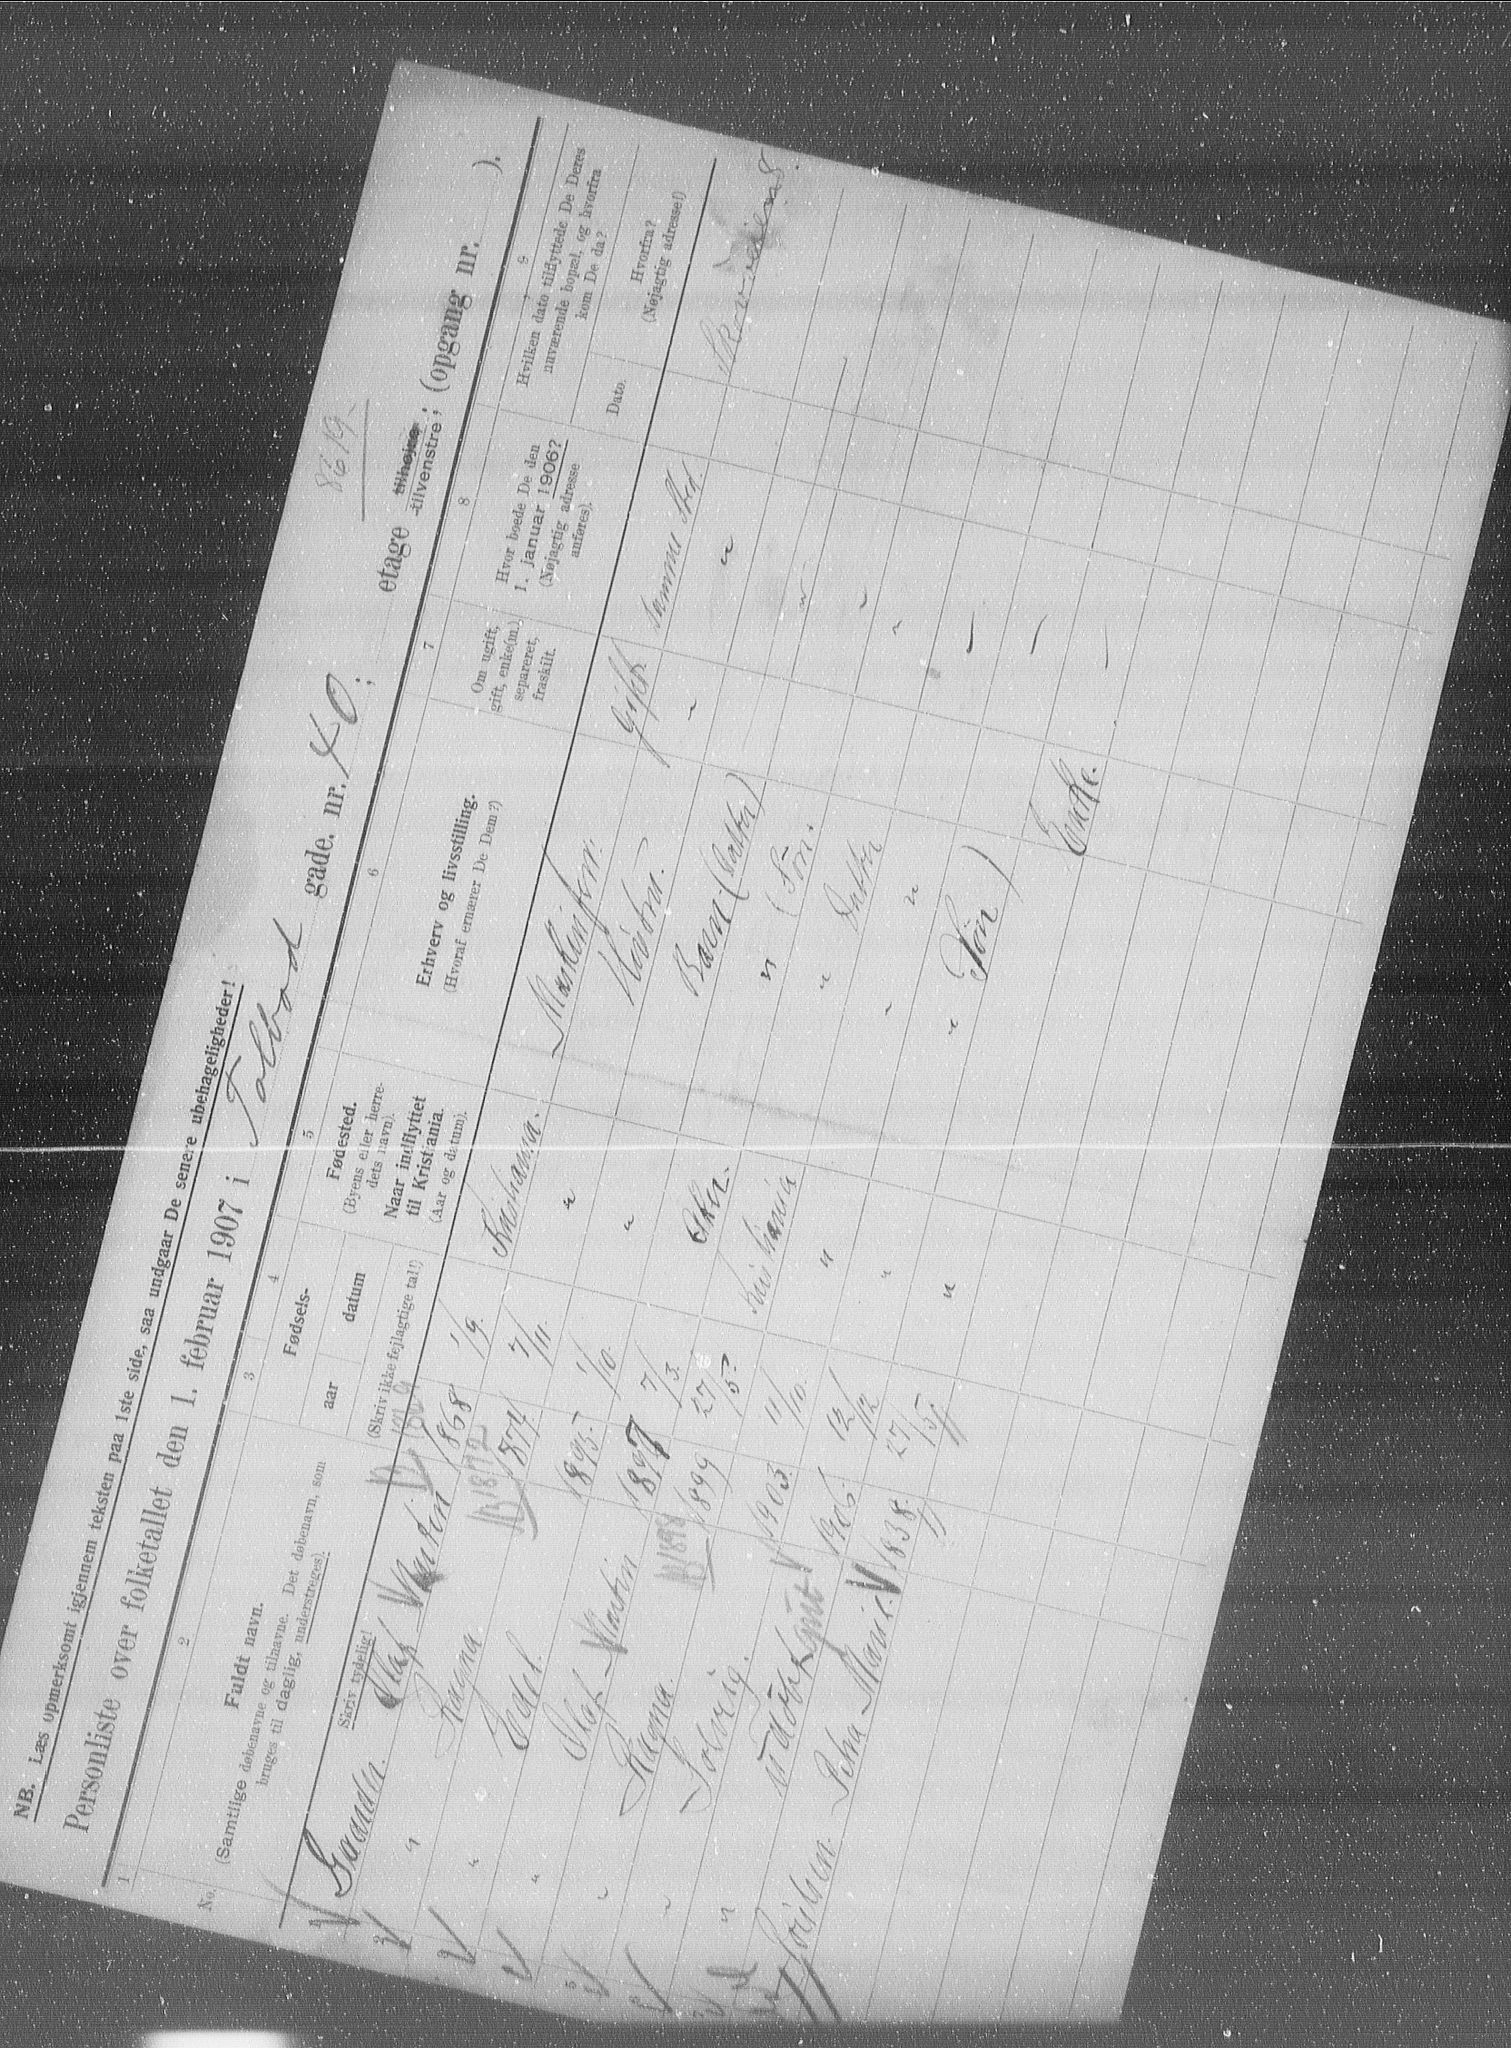 NB. Læs opmerksomt igjennem teksten paa 1ste side, saa undgaar De senere ubehageligheder!
8619
Personliste over folketallet den 1. februar 1907 i Tolbod gade. nr. 40; etage tilhøjre, tilvenstre; (opgang nr. ).
1 2 3 4 5 6 7 8 9
No.
Fuldt navn.
(Samtlige døbenavne og tilnavne. Det døbenavn, som
bruges til daglig, understreges).
Skriv tydelig!
Fødsels-
aar datum
(Skriv ikke fejlagtige tal!)
Fødested.
(Byens eller herre-
dets navn).
Naar indflyttet
til Kristiania.
(Aar og datum).
Erhverv og livsstilling.
(Hvoraf ernærer De Dem?)
Om ugift,
gift, enke(m.),
separeret,
fraskilt.
Hvor boede De den
1. januar 1906?
(Nøjagtig adresse
anføres).
Hvilken dato tilflyttede De Deres
nuværende bopæl, og hvorfra
kom De da?
Dato.
Hvorfra?
(Nøjagtig adresse!)
1 Olaf Martin 1868 1/9. Kristiania. Gift. samme sted.
1869
2 " Ragna 1874 7/11. " "
1872
3 " 1895 1/10. " Barn (Datter) "
4 " Olaf Martin 1897 7/3. Aker. " (Søn. "
5 " Ragna. 1899 27/5. Kristiania " Datter "
1898
6 " Solveig. 1903. 11/10. " " " "
7 " udøbt gut 1906 12/12 " " Søn) "
Petra Marie. 1838. 27/5 " Enke.